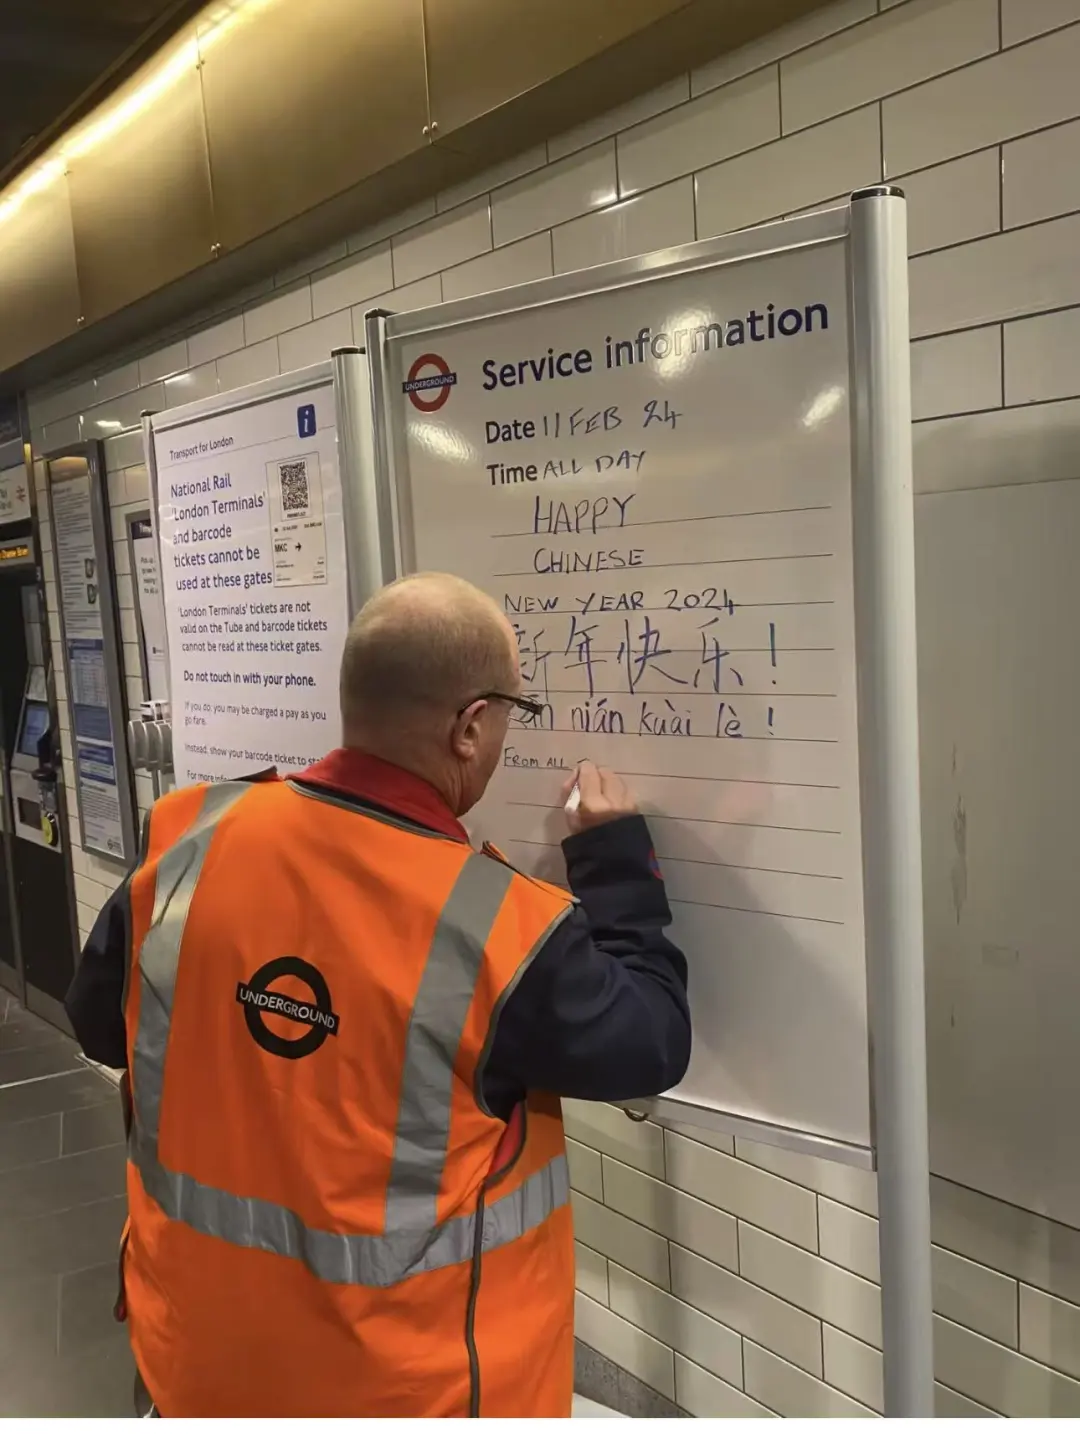 Transport for London
i
National Rail
'London Terminals'
and barcode
tickets cannot be
used at these gates
MKC
'London Terminals' tickets are not
valid on the Tube and barcode tickets
cannot be read at these ticket gates.
Do not touch in with your phone.
If you do, you may be charged a pay as you
go fare.
Instead, show your barcode ticket to
For more
UNDERGROUND
Service information
Date 11 FEB 24
Time ALL DAY
HAPPY
CHINESE
NEW YEAR 2024
新年快乐！
nián kuài lè !
FROM ALL
UNDERGROUND